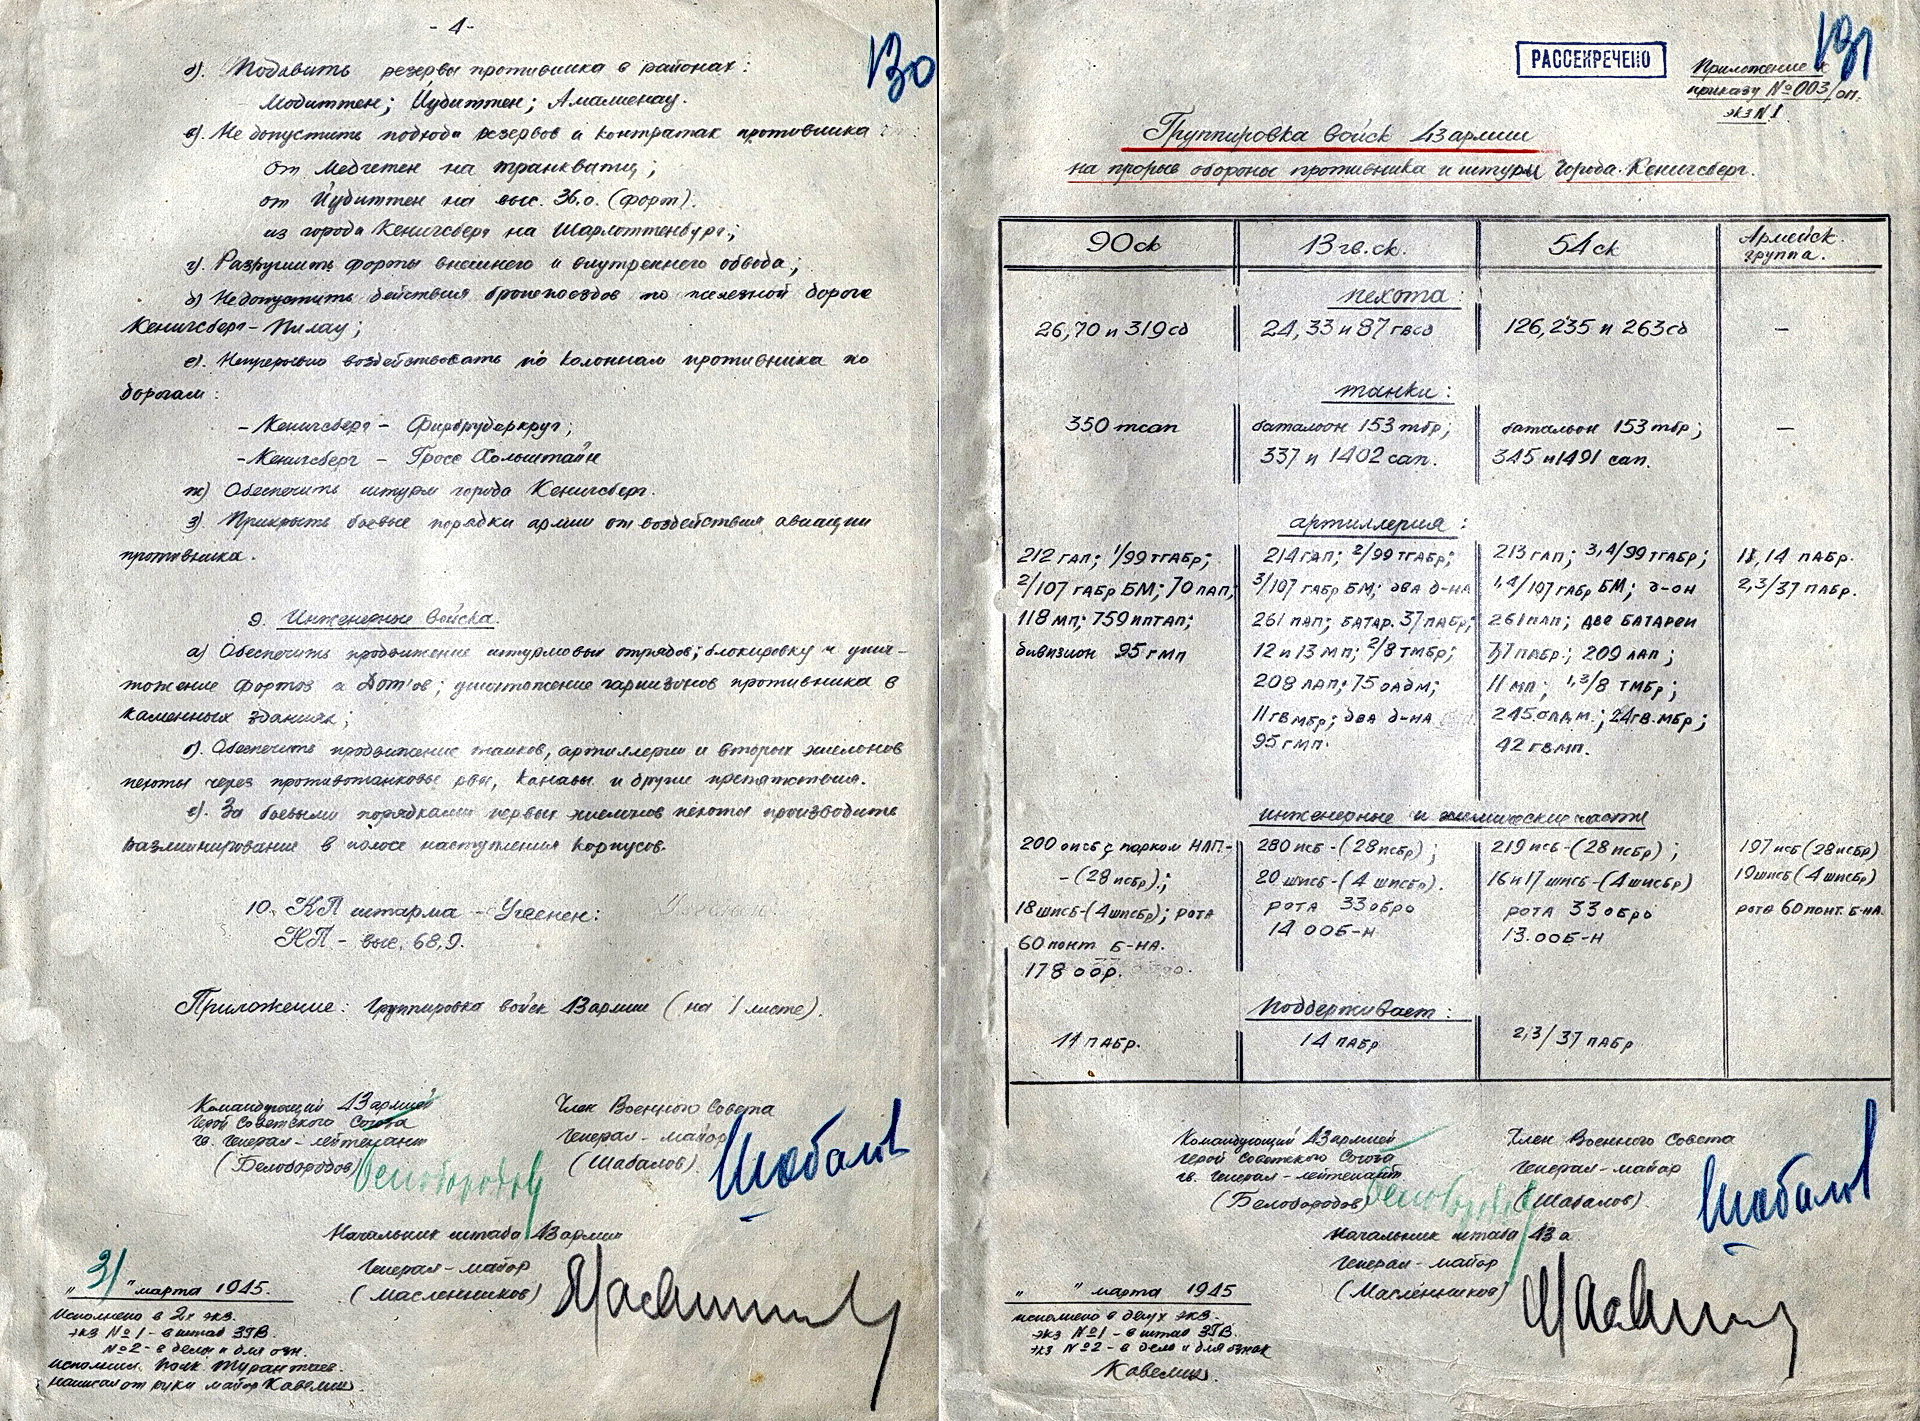 - 4 -
130
б). Подавить резервы противника в районах:
Модиттен; Иудиттен; Амалиенау.
в). Не допустить подхода резервов и контратак противника
от Медчетен на транквитц;
от Иудиттен на выс. 36.0. (форт).
из города Кенигсберг на Шарлоттенбург;
г). Разрушить форты внешнего и внутреннего обвода;
д) Недопустить действия бронепоездов по железной дороге
Кенигсберг - Пилау;
е). Непрерывно воздействовать по колоннам противника по
дорогам:
- Кенигсберг - Фирбрудеркруг;
- Кенигсберг - Гросс Хольштайн
ж) Обеспечить штурм города Кенигсберг.
з). Прикрыть боевые порядки армии от воздействия авиации
противника.
9. Инженерные войска.
а) Обеспечить продвижение штурмовых отрядов; блокировку и унич-
тожение фортов и Дот'ов; уничтожение гарнизонов противника в
каменных зданиях;
б). Обеспечить продвижение танков, артиллерии и вторых эшелонов
пехоты через противотанковые рвы, канавы и другие препятствия.
в). За боевыми порядками первых эшелонов пехоты производить
разминирование в полосе наступления корпусов.
10. КП штарма - Уггенен:
НП - выс. 68,9.
Приложение: Группировка войск 43 армии (на 1 листе).
Командующий 43 армией
Герой Советского Союза
гв. генерал-лейтенант
(Белобородов) Белобородов
Член Военного Совета
Генерал-майор
(Шабалов). Шабалов
Начальник штаба 43 армии
Генерал-майор
(Масленников)
„31" марта 1945.
Исполнено в 2х экз.
экз №1 - в штаб ЗГВ.
№2 - в дело и для озн.
исполнил
написал от руки майор Кавелин.
131
РАССЕКРЕЧЕНО
Приложение к
приказу №003/оп.
экз N1.
Группировка войск 43 армии
на прорыв обороны противника и штурм города Кенигсберг.
90ск 13 гв.ск. 54ск Армейск. группа.
пехота:
26,70 и 319 сд 24, 33 и 87 гвсд 126, 235 и 263 сд —
танки:
350 тсап батальон 153 тбр; батальон 153 тбр; —
337 и 1402 сап. 345 и 1491 сап.
артиллерия:
212 ГАП; 1/99 ТГАБР; 214 ГАП; 2/99 ТГАБР; 213 ГАП; 3,4/99 ТГАБР; 11, 14 ПАБР.
2/107 ГАБР БМ; 70 ЛАП; 3/107 ГАБР БМ; ДВА Д-НА 1,4/107 ГАБР БМ; Д-ОН 2,3/37 ПАБР.
118 МП; 759 ИПТАП; 261 ПАП; БАТАР. 37 ПАБР; 261 ПАП; ДВЕ БАТАРЕИ
дивизион 95 ГМП 12 и 13 МП; 2/8 ТМБР; 37 ПАБР.; 209 ЛАП;
208 ЛАП; 75 ОАДМ; 11 МП; 1,3/8 ТМБР;
11 ГВ МБР; ДВА Д-НА 245 ОАДМ.; 24 ГВ. МБР;
95 ГМП. 42 ГВМП.
инженерные и химические части
200 опсб с парком НЛП.- 280 ИСБ -(28 ИСБР); 219 ИСБ -(28 ИСБР); 197 ИСБ (28 ИСБР)
-(28 ИСБР).; 20 ШИСБ -(4 ШИСБР). 16 и 17 ШИСБ -(4 ШИСБР) 19 ШИСБ (4 ШИСБР)
18 ШИСБ -(4 ШИСБР); рота рота 33 обро рота 33 обро рота 60 понт. Б-НА.
60 понт Б-НА. 14 ООБ-Н 13. ООБ-Н
178 оор.
Поддерживает:
11 ПАБР. 14 ПАБР 2,3/37 ПАБР
Командующий 43 армией
Герой Советского Союза
гв. Генерал-лейтенант
(Белобородов) Белобородов
Член Военного Совета
Генерал-майор
(Шабалов). Шабалов
Начальник штаба 43 а
Генерал-майор
(Масленников)
„ " марта 1945
исполнено в двух экз.
экз №1 - в штаб ЗГВ.
экз №2 - в дело и для ознак
Кавелин.